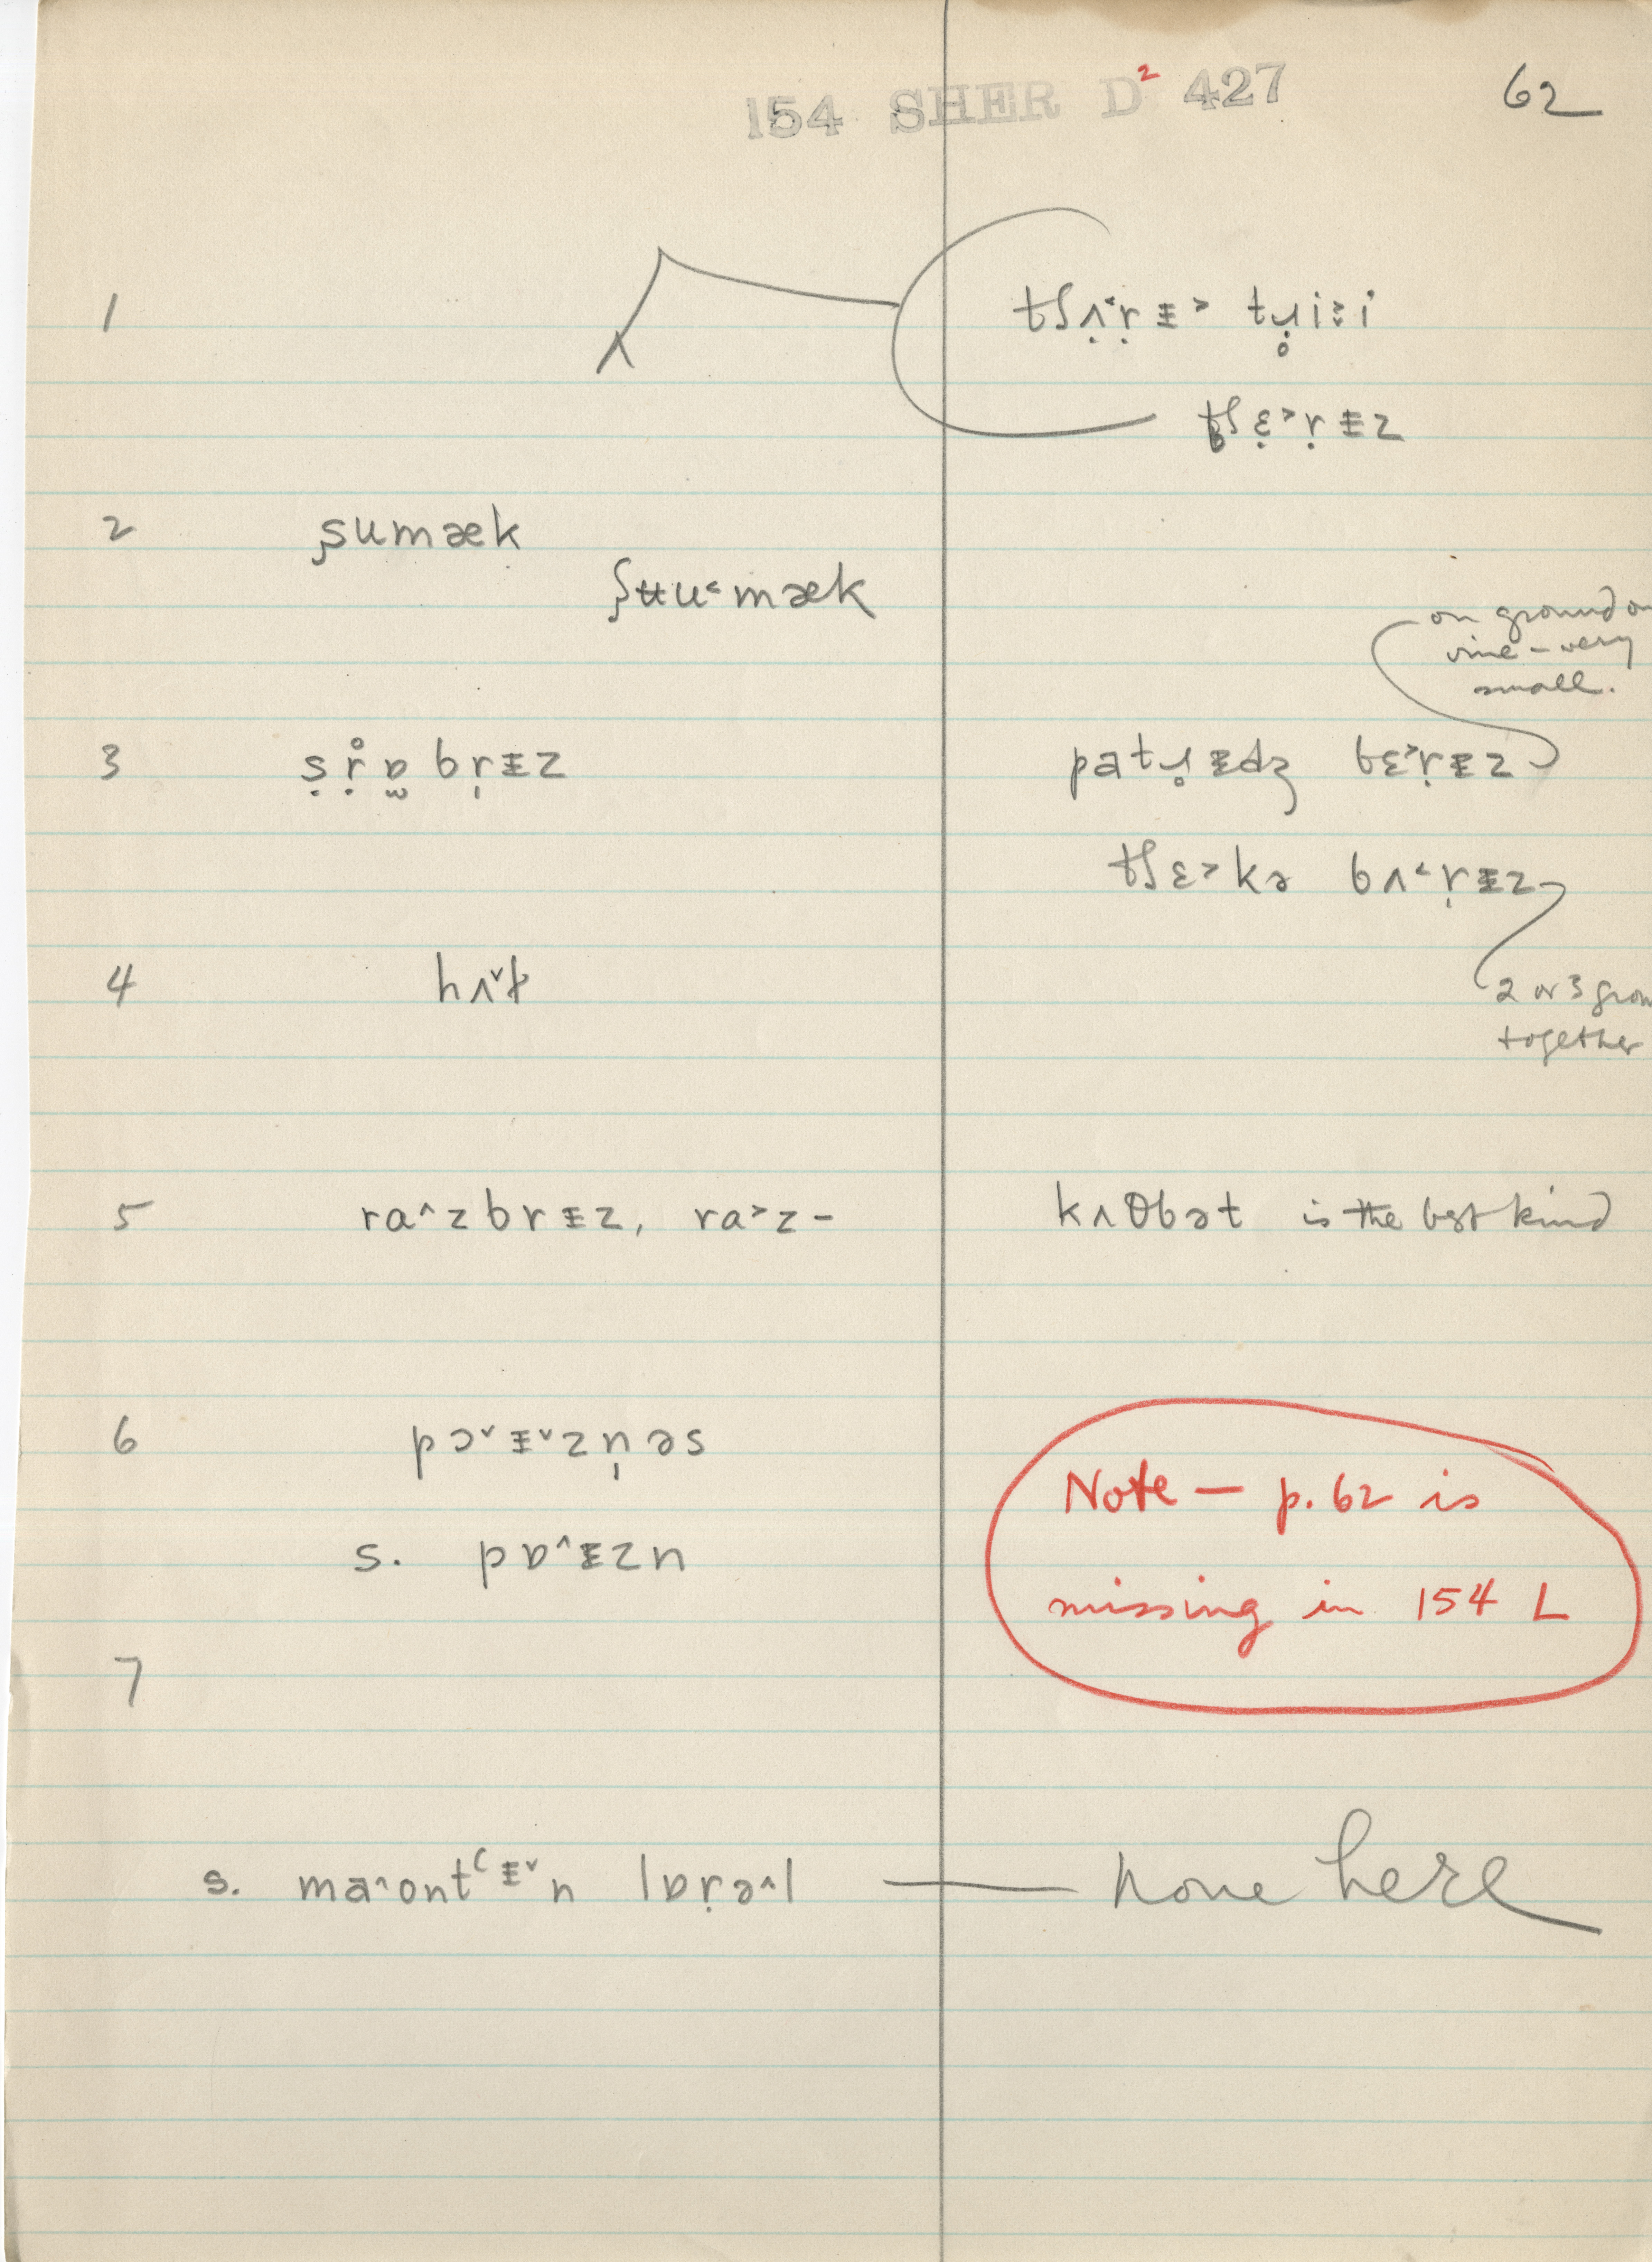 154 SHER D² 427 62
1 tʃʌ̣˂ṛᵻ˃ tɹ̥̣iːi
tʃɛ̣˃ṛᵻz
2 ʂumæk
ʃʉu˂mæk
on ground on
vine – very
small.
3 ṣṛ̊ɒ̫bṛᵻz patɹ̥ᵻdʒ bɛ˃ṛᵻz
tʃɛ˃kə bʌ˂ṛᵻz
4 hʌ˅t
2 or 3 grow
together
5 ra˄zbrᵻz, ra˃z- kʌθbət is the best kind
6 pɔ˅ᵻ˅zn̩əs
s. pɒ˄ᵻzn
Note — p. 62 is
missing in 154 L
7
s. ma˄ontʿᵻ˅n lɒṛə˄l — none here